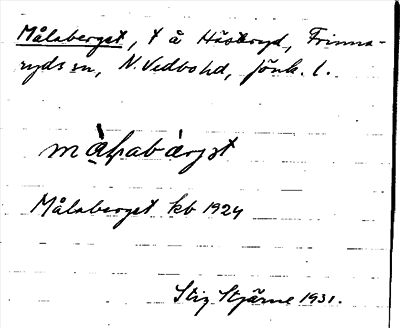 Målaberget, t å Hästryd, Frinna-
ryds sn, N. Vedbo hd, Jönk. l.
Målaberget kb 1924
Stig Stjärne 1931.